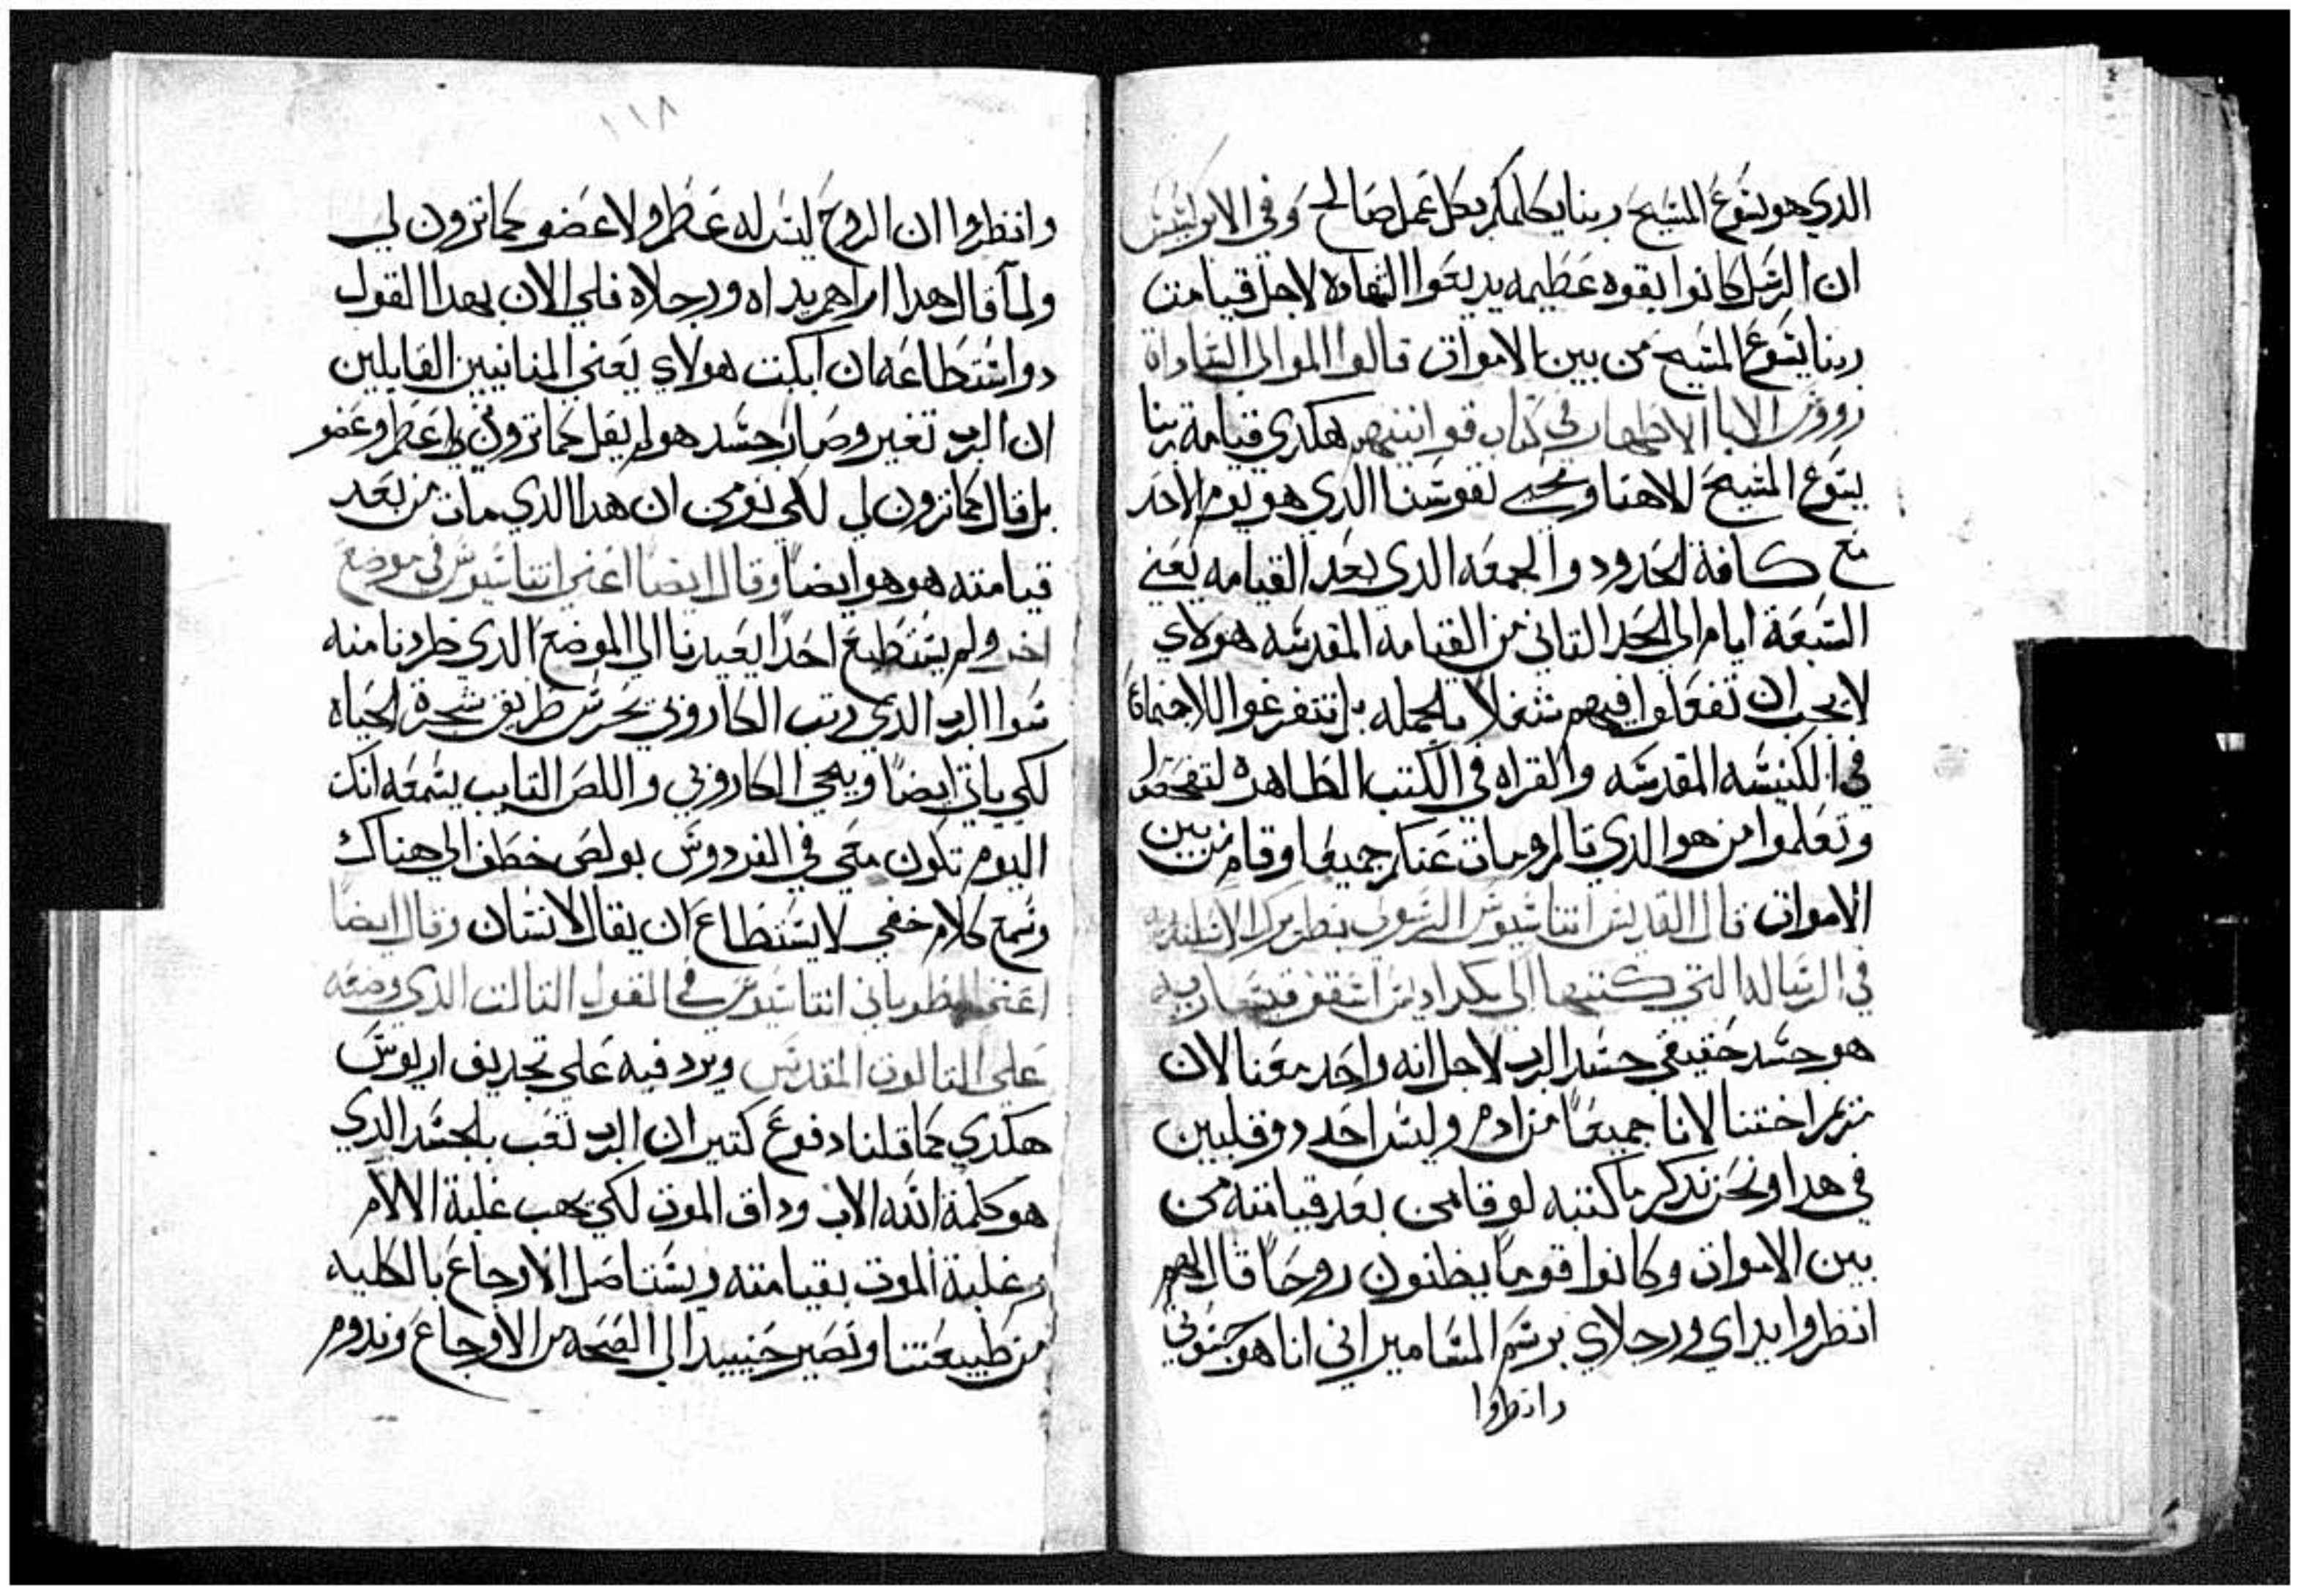 الدي هو يسوع المسيح ربنا يكلمكم بكل عمل صالح وفي الابركسيس
ان الرسل كانوا بقوه عظيمه يديعوا الشهاده لاجل قيامت
ربنا يسوع المسيح من بين الاموات قالوا الموالي الساداة
رووس الابا الاطهار في كتاب قوانينهم هكدي قيامة ربنا
يسوع المسيح الاهنا ومحيي نفوسنا الدي هو يوم الاحد
مع كافة الحدود والجمعه الدي بعد القيامه يعني
السبعة ايام الي الحد التاني من القيامه المقدسه هولاي
لا يجب ان تفعلوا فيهم شغلا بالجمله بل تتفرغوا للاجتماع
في الكنيسه المقدسه والقراه في الكتب الطاهره لتفحصوا
وتعلموا من هو الدي تالم ومات عنكم جميعا وقام من بين
الاموات قال القديس اتناسيوس الرسولي بطريرك الاسكندريه
في الرساله التي كتبها الي
هو جسد حقيقي جسد الرب لاجل انه واحد معنا لان
مريم اختنا لانا جميعًا من ادم وليس احد دو قلبين
في هدا ونحن ندكر ما كتبه لوقا من بعد قيامته من
بين الاموات وكانوا قومًا يظنون روحًا قال لهم
انظروا يداي ورجلاي برسم المسامير اني انا هو جسوني
وانظروا
١١٨
وانظروا ان الروح ليس له عظم ولا عضو كما ترون لي
ولما قال هدا اراهم يداه ورجلاه فلي الان بهدا القول
دو استطاعه ان ابكت هولاي يعني المنانيين القايلين
ان الرب تغير وصار جسد هو لم يقل كما ترون لي عظم وعضو
بل قال كما ترون لي لكي نومن ان هدا الدي مات من بعد
قيامته هو هو ايضًا وقال ايضًا اعني اتناسيوس في موضع
اخر ولم يستطيع احدًا يعيدنا الي الموضع الدي طردنا منه
سوا الرب الدي رتب الكاروبي يحرس طريق شجرة الحياه
لكي ياتي ايضًا وينحي الكاروبي واللص التايب يسمعه انك
اليوم تكون معي في الفردوس بولص خطف الي هناك
وسمع كلام خفي لا يستطاع ان يقال لانسان وقال ايضًا
اعني الطوباني اتناسيوس في القول التالت الدي وضعه
علي التالوت المقدس ويرد فيه علي تجديف اريوس
هكدي كما قلنا دفوع كتير ان الرب تعب بالجسد الدي
هو كلمة الله الاب وداق الموت لكي يهب غلبة الالام
وغلبة الموت بقيامته ويستاصل الاوجاع بالكليه
من طبيعتنا ونصير حينييد الي الصحه من الاوجاع وندوم